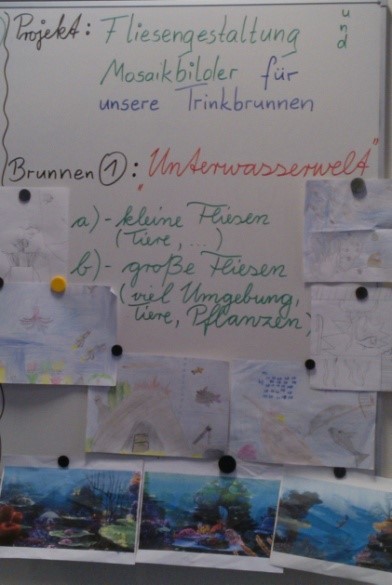 Projekt: Fliesengestaltung und
Mosaikbilder für
unsere Trinkbrunnen
Brunnen ①: "Unterwasserwelt"
a) - kleine Fliesen
(Tiere, ...)
b) - große Fliesen
(viel Umgebung,
Tiere, Pflanzen)